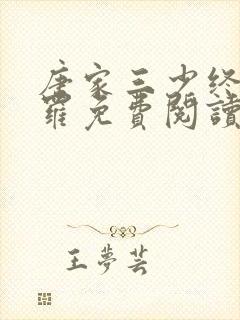 唐家三少终
羅免費閱讀
王夢芸